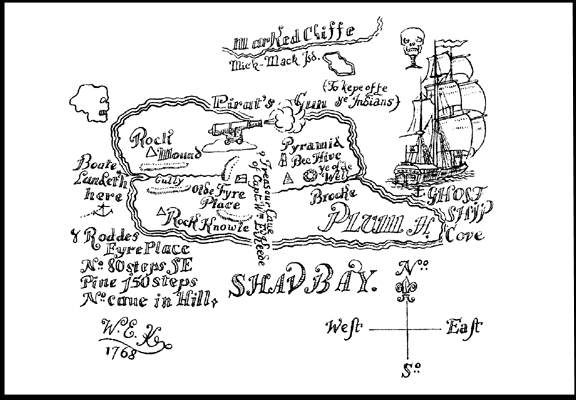 Marked Cliffe
Mick-Mack Isd.
(To kepe offe
ye Indians)
Pirat's Gun
Rock
Mound
Pyramid
Bee Hive
ye olde
Well
Boate
Landeth
here
Gully
olde Fyre
Place
Treasoure Cave
of Capt. Wm
Brooke
Rock Knowle
Plum
GHOST
SHIP
Cove
4 Roddes
Fyre Place
No: 80 steps SE
Pine 150 steps
No: cave in Hill,
SHAD BAY.
No:
West
East
So:
W. E. K
1768